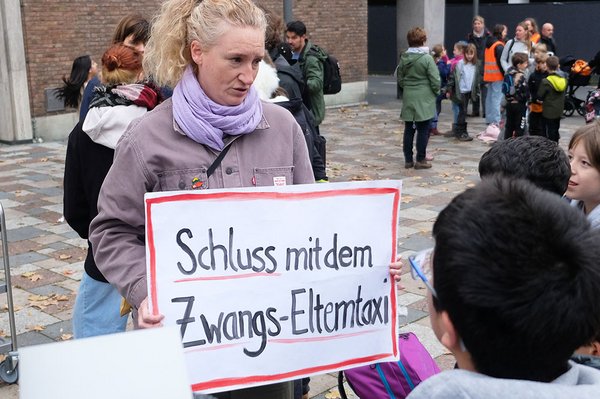 Schluss mit dem
Zwangs-Elterntaxi